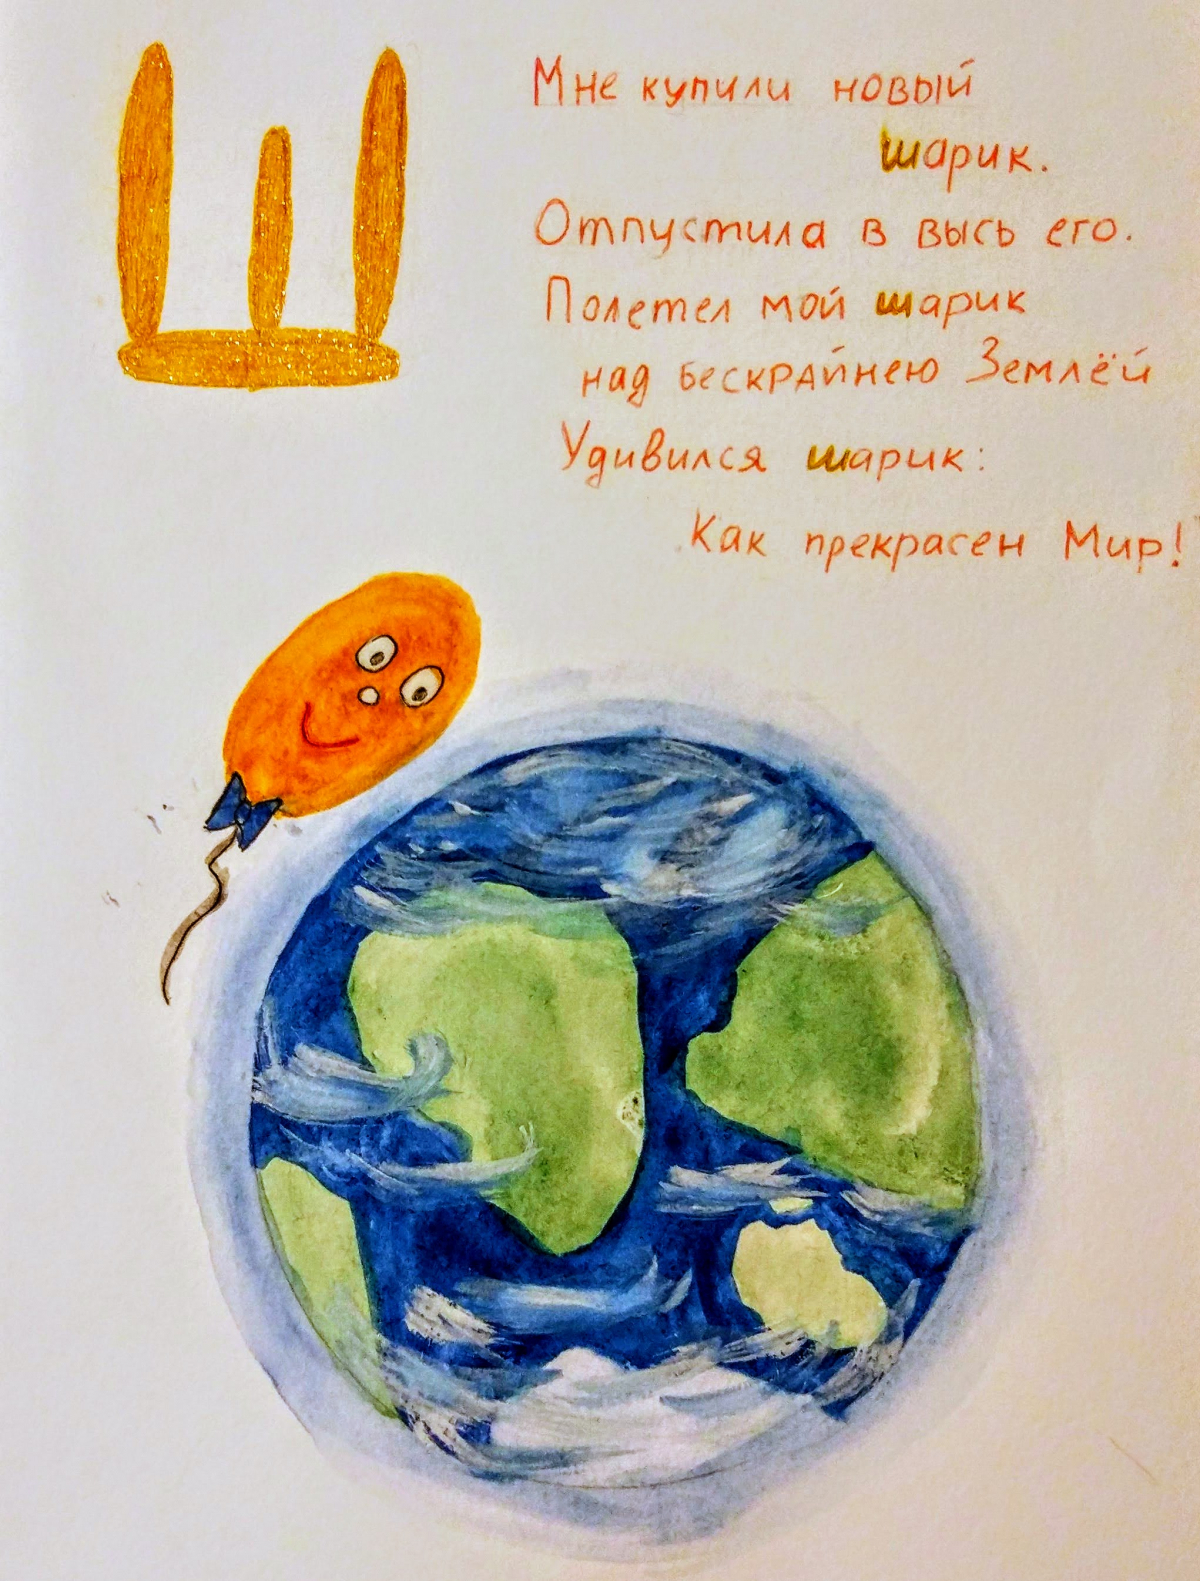 Ш
Мне купили новый
шарик.
Отпустила в высь его.
Полетел мой шарик
над бескрайнею Землёй
Удивился шарик:
Как прекрасен Мир!